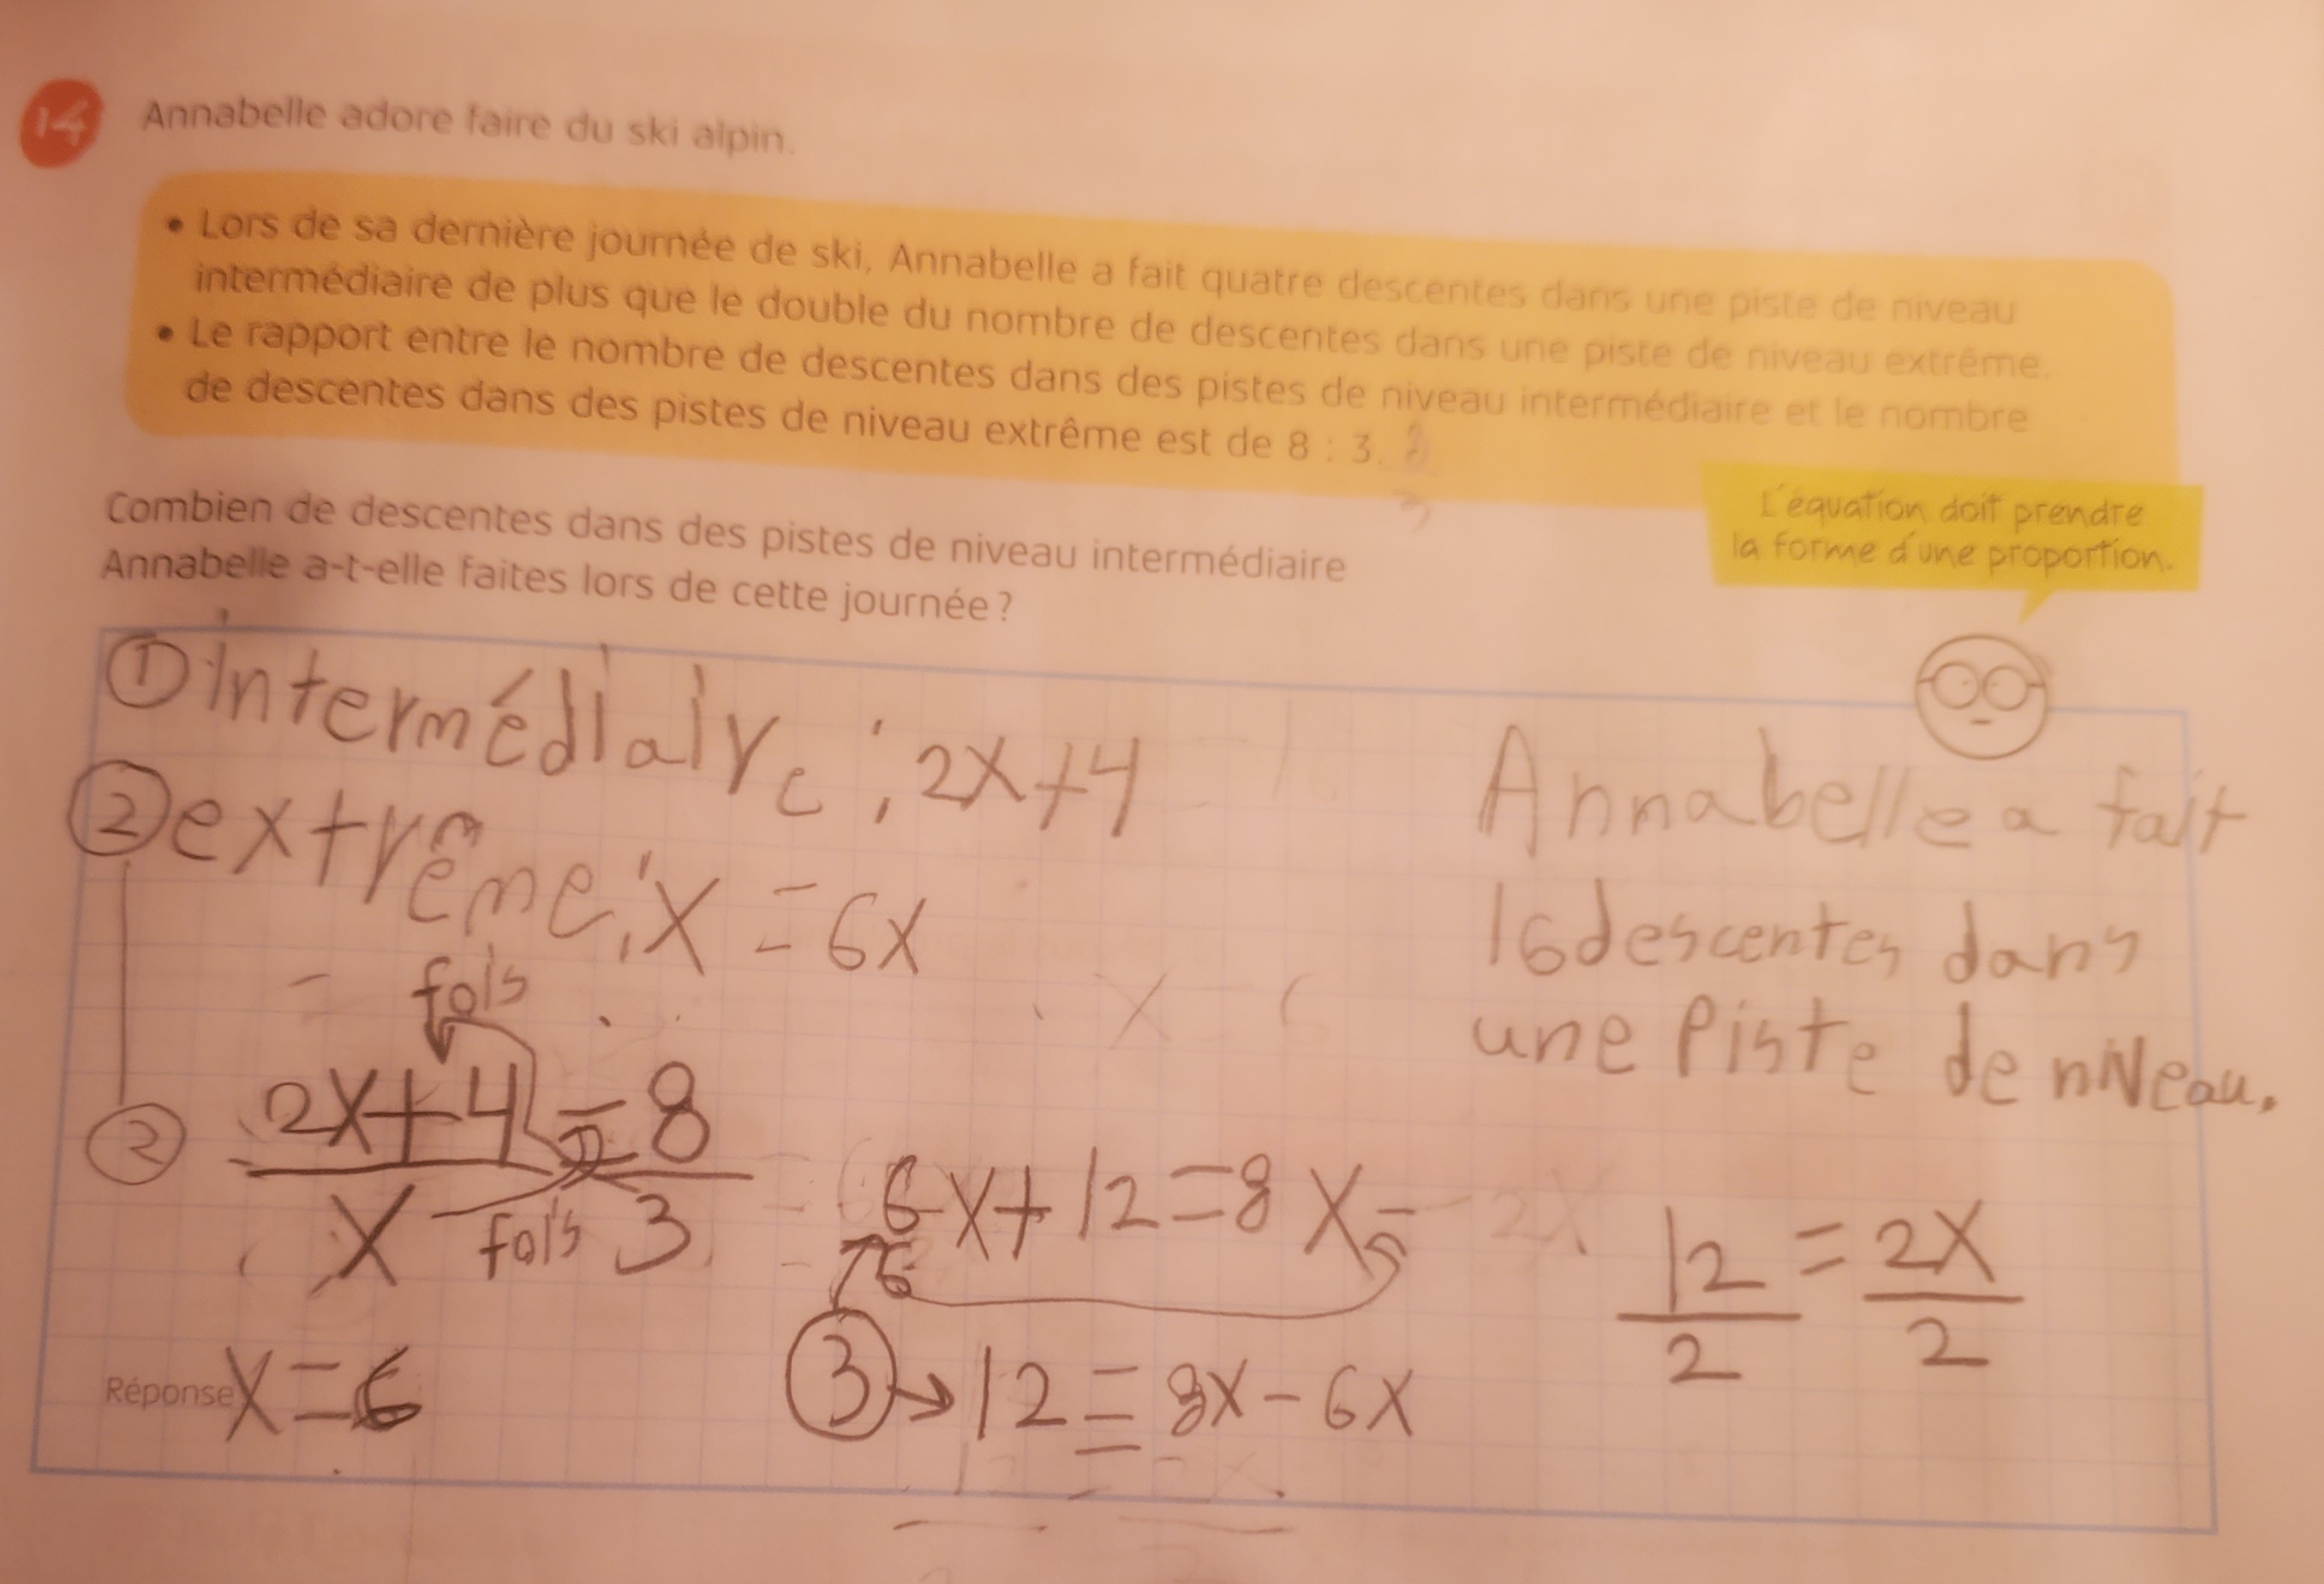 14 Annabelle adore faire du ski alpin.
• Lors de sa dernière journée de ski, Annabelle a fait quatre descentes dans une piste de niveau
intermédiaire de plus que le double du nombre de descentes dans une piste de niveau extrême.
• Le rapport entre le nombre de descentes dans des pistes de niveau intermédiaire et le nombre
de descentes dans des pistes de niveau extrême est de 8 : 3.
Combien de descentes dans des pistes de niveau intermédiaire
Annabelle a-t-elle faites lors de cette journée ?
L'équation doit prendre
la forme d'une proportion.
① intermédiaire : 2x+4
② extrême : x = 6x
Annabelle a fait
16 descentes dans
une piste de niveau.
fois
② 2x+4 = 8
x fois 3
6x+12=8x-
6
③ → 12 = 8x - 6x
12 = 2x
2 2
Réponse x=6